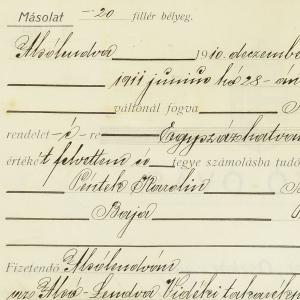 Másolat —20 fillér bélyeg.
Alsólendva 1910. deczembe
1911 junius hó 28-án
váltónál fogva
rendelet-é-re Egyszázhatvan
értéket felvettem és tegye számolásba tudó
Pintek Karolin
Baja
Fizetendő Alsólendván
Alsó-Lendva Vidéki takarék